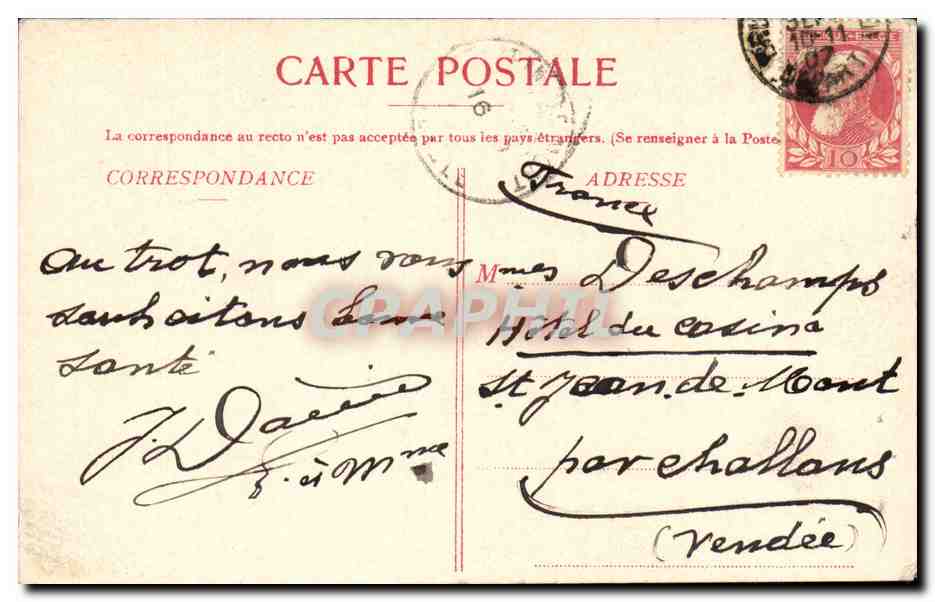 CARTE POSTALE
La correspondance au recto n'est pas acceptée par tous les pays étrangers. (Se renseigner à la Poste
CORRESPONDANCE
au trot, nous vous
souhaitons bonne
santé
et Mme
ADRESSE
France
Mmes Deschamps
Hôtel du casino
St Jean de Mont
par challans
(Vendée)
10
SEPT
10-11
07
DEPART
16
GRAPHTIL